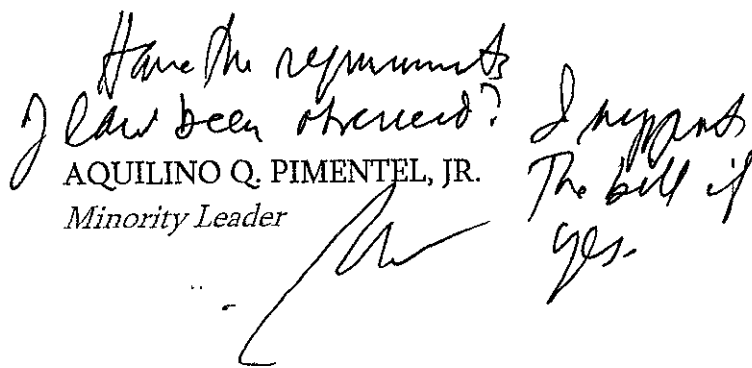 Have the requirements
of law been observed?
I support
The bill if
yes.
AQUILINO Q. PIMENTEL, JR.
Minority Leader